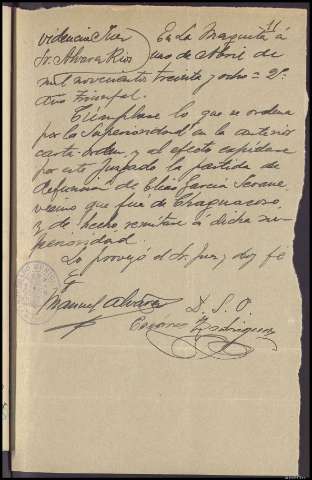 11
videncia Juez
Sr. Alvarez Rios
En la Mezquita á
uno de Abril de
mil novecientos treinta y ocho = 2º
Año Triunfal.
Cúmplase lo que se ordena
por la Superioridad en la anterior
carta-orden, y al efecto expidase
por este Juzgado la partida de
defunción de Elias Garcia Seoane,
vecino que fué de Chaguazoso,
y de hecho, remitase á dicha su-
perioridad.
Lo proveyó el Sr. Juez, doy fé
Manuel Alvarez
D. S. O.
Rodriguez